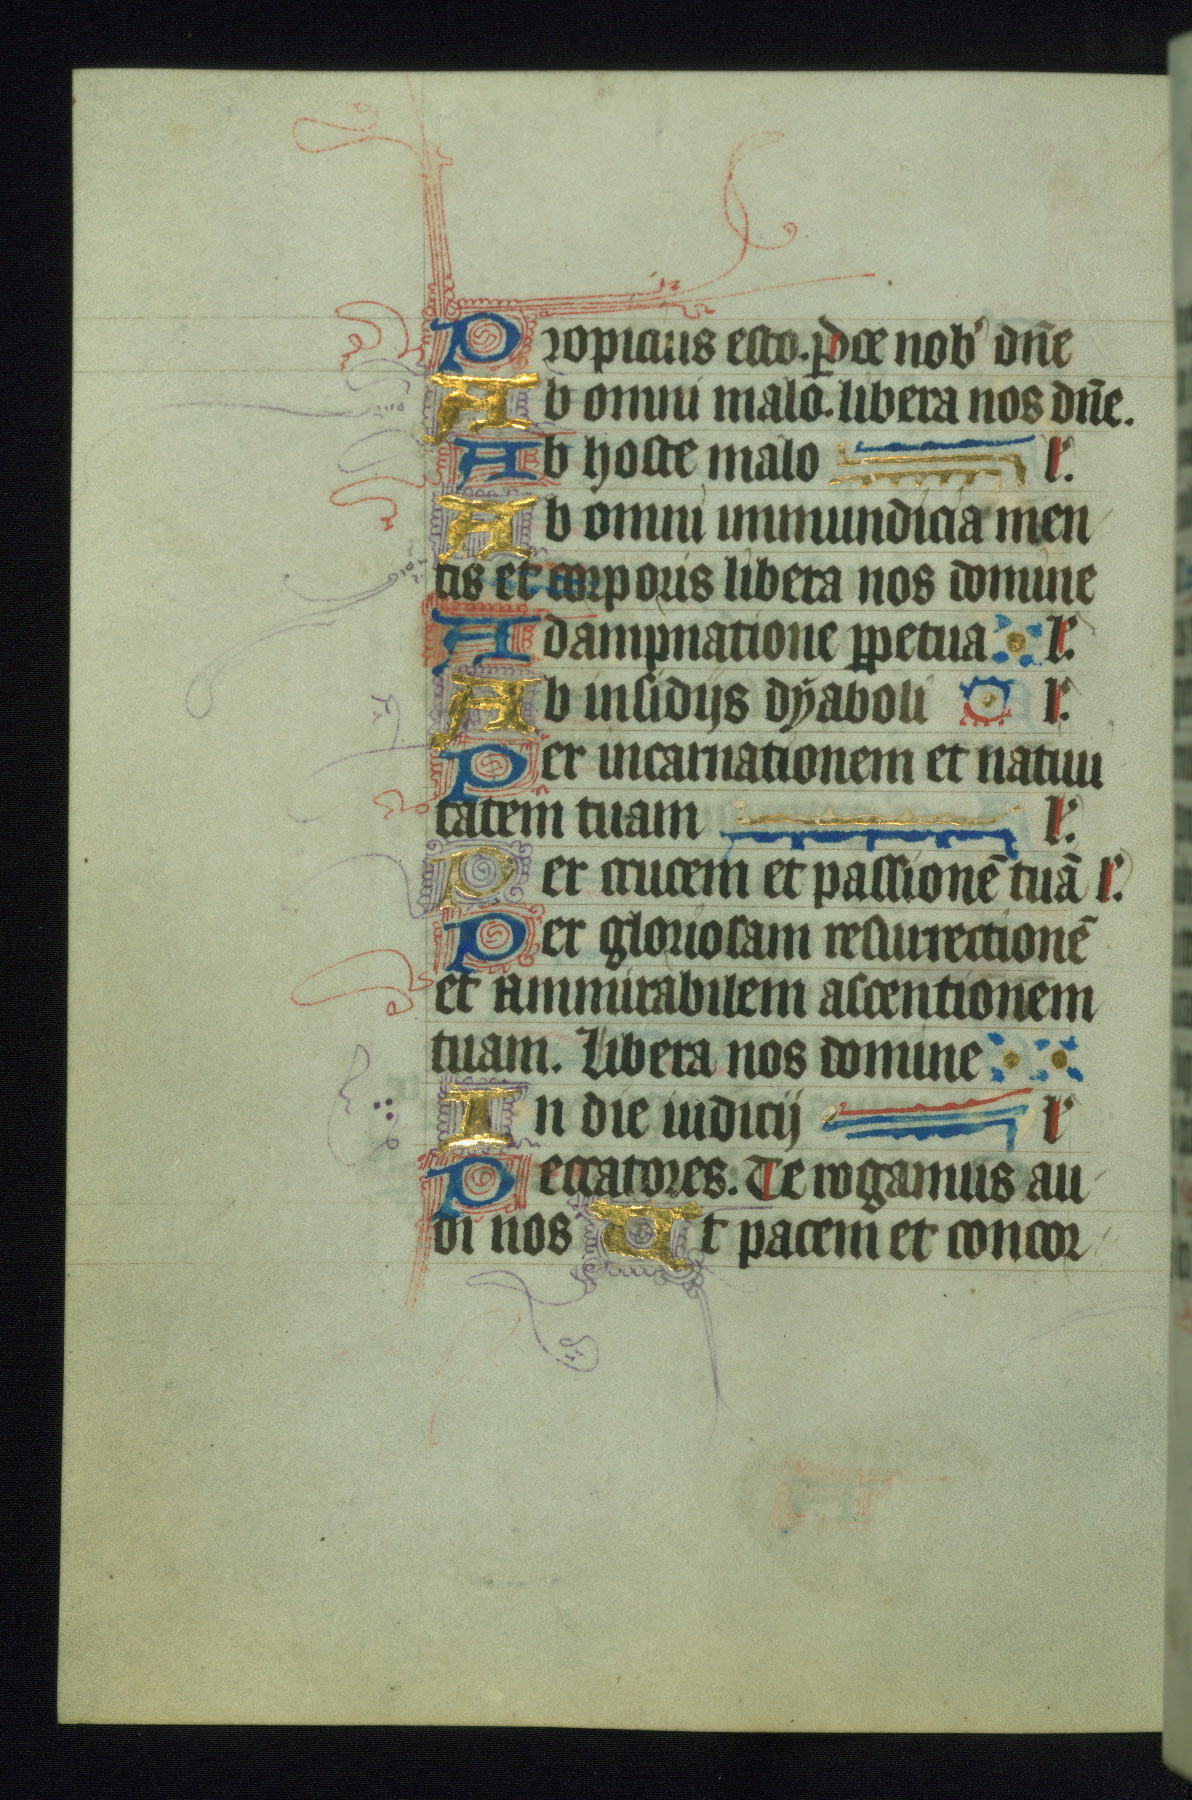 Propicius esto. p̄ce nob' dn̄e
Ab omni malo. libera nos dn̄e.
Ab hoste malo l'.
Ab omni immundicia men
tis et corporis libera nos domine
A dampnatione ꝑpetua l'.
Ab insidijs dyaboli l'.
Per incarnationem et natiui
tatem tuam l'.
Per crucem et passionē tuā l'.
Per gloriosam resurrectionē
et ammirabilem ascentionem
tuam. Libera nos domine
In die iudicij l'
Peccatores. Te rogamus au
di nos Ut pacem et concor